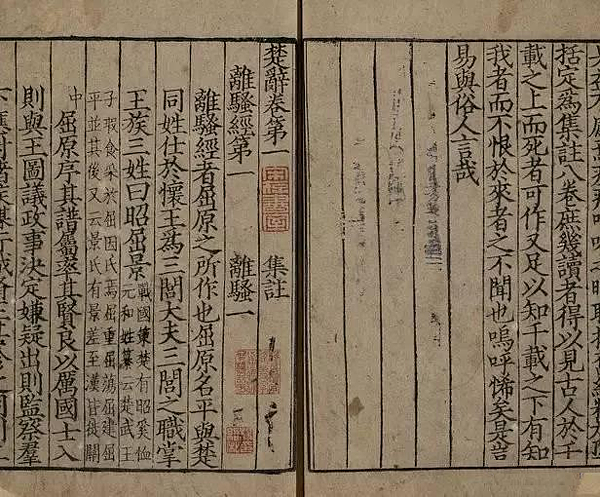 括定為集註八卷庶幾讀者得以見古人於千
載之上而死者可作又足以知千載之下有知
我者而不恨於來者之不聞也嗚呼悕矣是豈
易與俗人言哉
楚辭卷第一 集註
離騷經第一 離騷一
離騷經者屈原之所作也屈原名平與楚
同姓仕於懷王為三閭大夫三閭之職掌
王族三姓曰昭屈景 戰國策楚有昭奚恤
元和姓纂云楚武王
子瑕食采於屈因氏焉屈重屈蕩屈建屈
平並其後又云景氏有景差至漢皆徙關
中
屈原序其譜屬率其賢良以厲國士入
則與王圖議政事決定嫌疑出則監察羣